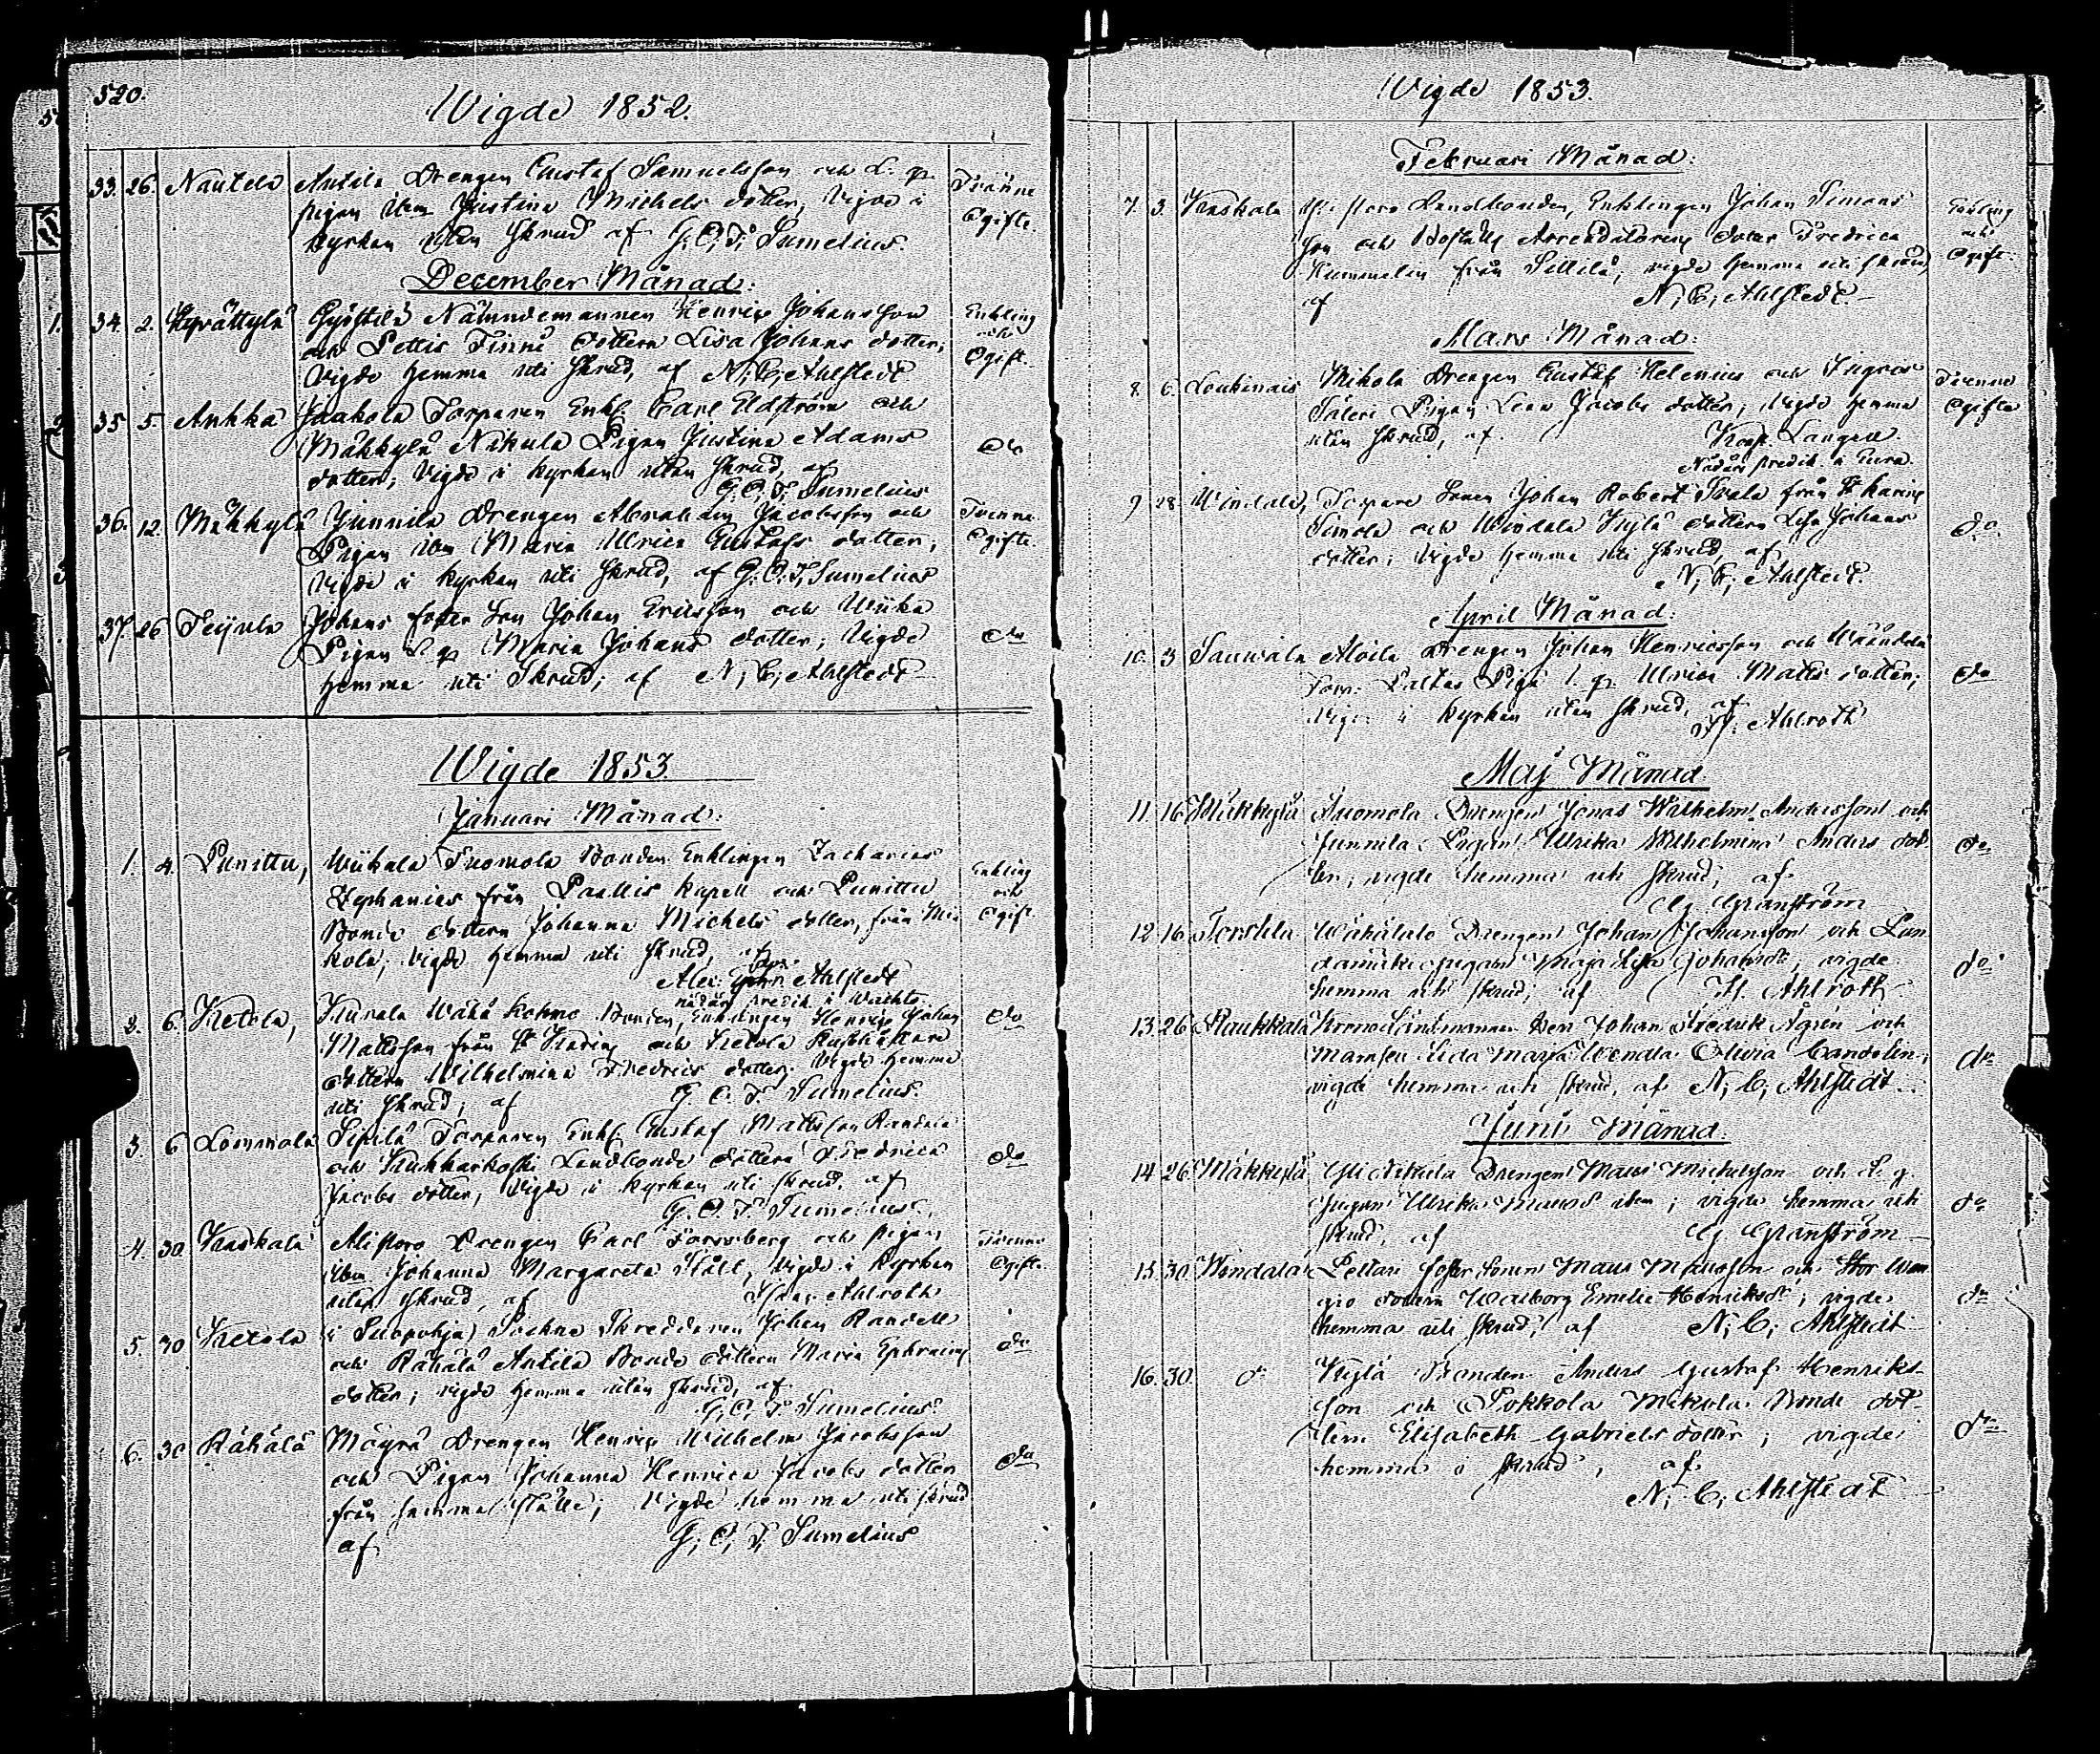 520.
Wigde 1852.
33. 26. Nautela Antila Drengen Gustaf Samuelsson och L. q. Tvänne
pigan ibm Justina Michels dotter, Vigde i Ogifte.
kyrkan utan Skrud af G. O. F. Sumelius.
December Månad:
34. 2. Nämndemannen Henric Johansson Enkling
och Pettis Finne dottern Lisa Johans dotter, och
Vigde hemma uti Skrud, af N. C. Ahlstedt Ogift.
35 5. Ankka Jaakola Torparen Enkl. Carl Eldström och
Mäkkylä Nikula Pigan Justina Adams do
dotter, Vigde i kyrkan utan Skrud, af
G. O. F. Sumelius
36. 12. Mäkkylä Junnila Drengen Abraham Jacobsson och Tvenne
Pigan ibm Maria Ulrica Gustafs dotter, Ogifte.
Vigde i kyrkan uti Skrud, af G. O. F. Sumelius
37. 26 Teijula Johans foster Son Johan Ericsson och Wiika
Pigan Maria Johans dotter, Vigde do
hemma uti Skrud; af N. C. Ahlstedt
Wigde 1853.
Januari Månad:
1. 4. Punittu, Wiikala Tuomola Bonden Enklingen Zacharias Enkling
Zephanias från Paattis kapell och Punittu och
Bonde dottern Johanna Michels dotter, från Ogift.
kola; vigde hemma uti Skrud, af
Alex. Ahlstedt
nådårs predik. i
2. 6. Ketola, Wähä Bonden, Enklingen Henric Johan do
Mattsson från St Karins och Ketola Rusthållare
dottern Wilhelmina Fredrics dotter. Vigde hemma
uti Skrud; af G. O. F. Sumelius.
3. 6 Lommola Sipilä Torparen Enkl. Gustaf Mattsson Randell
och Kuhkarkoski Landbonde dottern Fredrica do
Jacobs dotter, Vigde i kyrkan uti Skrud, af
G. O. F. Sumelius
4. 30 Kaskala Drengen Carl Forssberg och pigan Tvenne
ibm Johanna Margareta Ståhl, Vigde i Kyrkan Ogifte
utan Skrud, af Ahlroth
5. 30 Ketola Skreddaren Johan Randell
och Räkälä Antila Bonde dottern Maria Ephraims do
dotter; vigde hemma utan Skrud, af
G. O. F. Sumelius.
6. 30 Räkälä Mäyrä Drengen Henric Wilhelm Jacobsson
och Pigan Johanna Henrica Jacobs dotter do
från samma ställe; Vigde hemma uti skrud
af G. O. F. Sumelius
Wigde 1853.
Februari Månad:
7. 3. Kaskala Landbonden, Enklingen Johan Simons Enkling
son och Arrendatorens dotter Fredrica och
Hummelin från Sillilä, vigde hemma uti skrud Ogift.
af N. C. Ahlstedt
Mars Månad:
8. 6. Loukinais Mikola Drengen Gustaf Helenius och Tvenne
Säteri Pigan Lena Jacobs dotter, Vigde hemma Ogifte
utan Skrud, af Langell.
Nådårs predik. i Eura.
9 28. Windala, Torpare Sonen Johan Robert från St Karins
Simola och Windala Kylä dottern Lisa Johans do
dotter; Vigde hemma uti Skrud, af
N. C. Ahlstedt.
April Månad:
10. 3 Sauwala Moila Drengen Johan Henricsson och
Piga l. q. Ulrica Matts dotter; do
Vigde i kyrkan utan skrud, af
If. Ahlroth
Maj Månad
11 16 Mäkkylä Tuomola Drengen Jonas Wilhelm Andersson och
Junnila Pigan Ulrika Wilhelmina Anders dot- do
ter, vigde hemma uti Skrud, af
G. Granström
12 16 Torskila Wähätalo Drengen Johan Johansson och
Maja Lisa Johansdr, vigde do
hemma uti skrud, af If. Ahlroth
13 26 Raukkala Krono Länsmannen Herr Johan Fredrik Ågren och
Mamsell Lida Maria Wendla Olivia Candelin, do
vigde hemma uti skrud, af N. C. Ahlstedt
Juni Månad:
14 26 Mäkkylä Yli Nikula Drengen Mats Michelsson och L. q.
Pigan Ulrika Matsdr ibm; vigde hemma uti do
skrud, af G. Granström
15 30 Windala Pettari foster sonen Mats Matsson och Stor
dottern Walborg Emelie Henriksdr; vigde do
hemma uti skrud; af N. C. Ahlstedt
16. 30. do Kylä Bonden Anders Gustaf Henriks-
son och Pokkola Mikola Bonde dot-
tern Elisabeth Gabriels dotter; vigde do
hemma i skrud, af
N. C. Ahlstedt